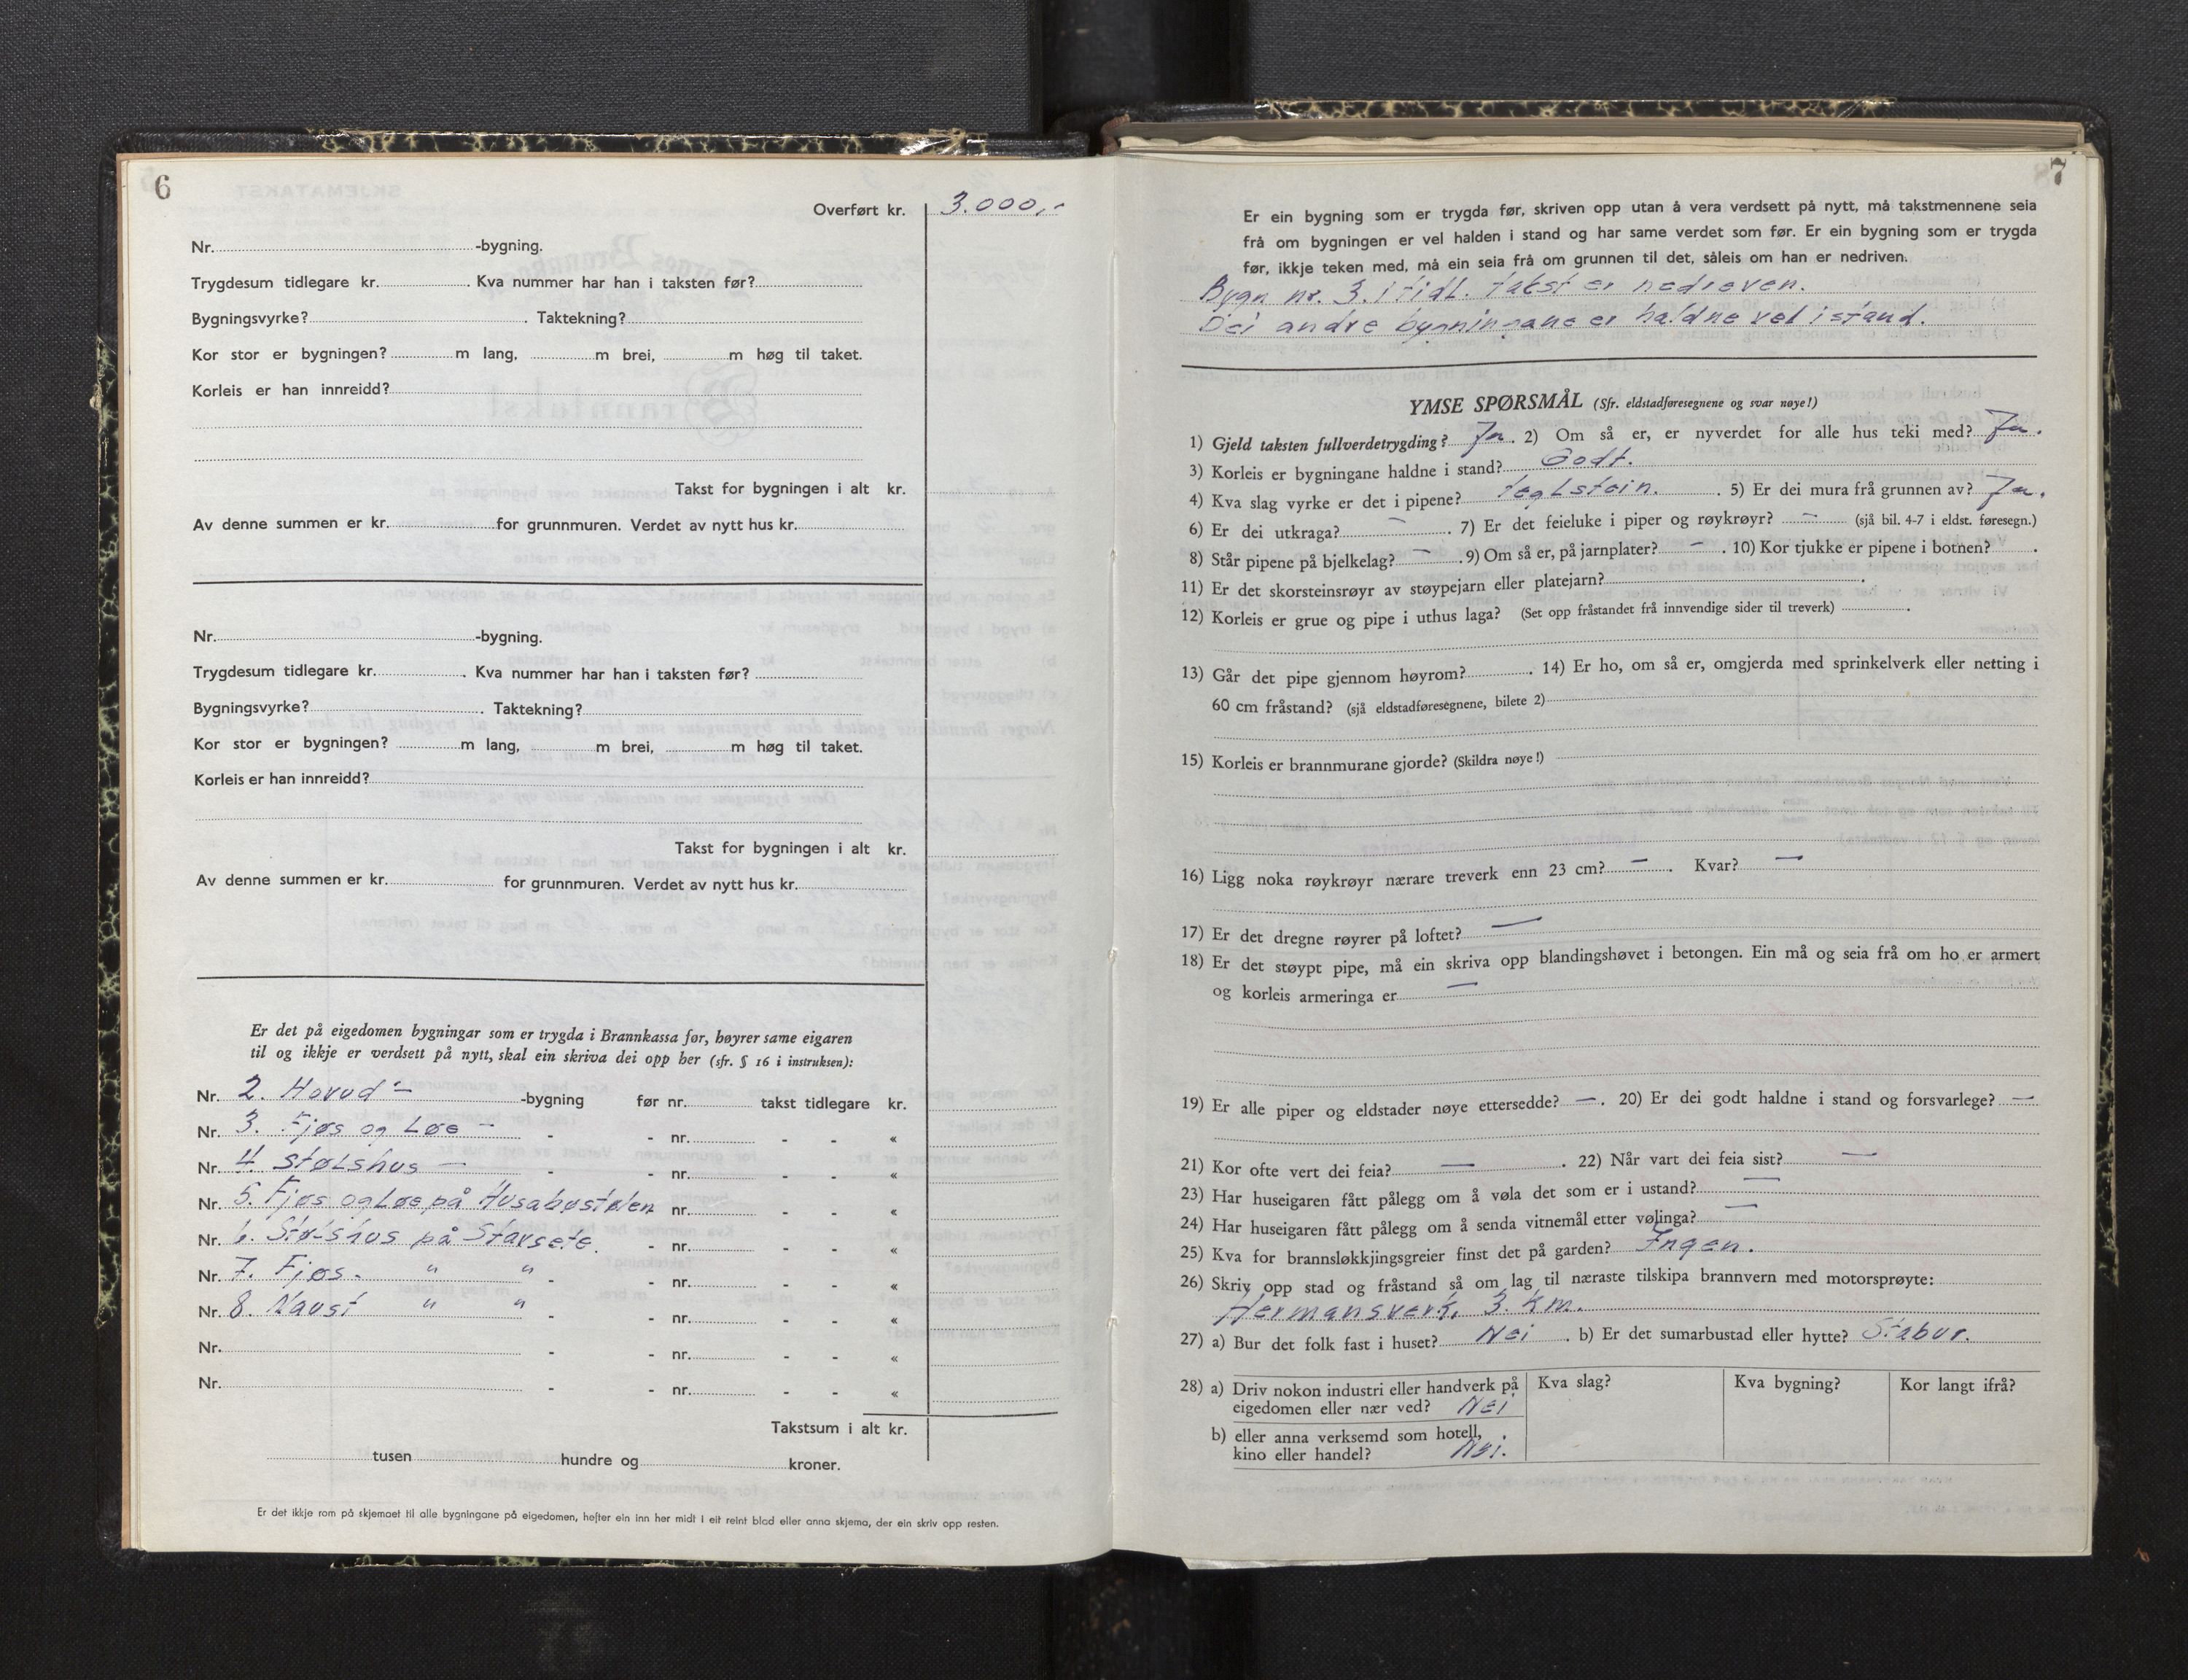 6
Overført kr. 3.000,-
Nr. -bygning.
Trygdesum tidlegare kr. . Kva nummer har han i taksten før?
Bygningsvyrke? . Taktekning?
Kor stor er bygningen? m lang, m brei, m høg til taket.
Korleis er han innreidd?
Takst for bygningen i alt kr.
Av denne summen er kr. for grunnmuren. Verdet av nytt hus kr.
Nr. -bygning.
Trygdesum tidlegare kr. . Kva nummer har han i taksten før?
Bygningsvyrke? . Taktekning?
Kor stor er bygningen? m lang, m brei, m høg til taket.
Korleis er han innreidd?
Takst for bygningen i alt kr.
Av denne summen er kr. for grunnmuren. Verdet av nytt hus kr.
Er det på eigedomen bygningar som er trygda i Brannkassa før, høyrer same eigaren
til og ikkje er verdsett på nytt, skal ein skriva dei opp her (sfr. § 16 i instruksen):
Nr. 2. Hovud - -bygning før nr. takst tidlegare kr.
Nr. 3. Fjøs og Løe - - - nr. - - «
Nr. 4. Stølshus - - - nr. - - «
Nr. 5. Fjøs og Løe på Husabustølen nr. - - «
Nr. 6. Stølshus på Stavsete. - nr. - - «
Nr. 7. Fjøs. " " - - nr. - - «
Nr. 8. Naust " " - - nr. - - «
Nr. - - nr. - - «
Nr. - - nr. - - «
Takstsum i alt kr.
tusen hundre og kroner.
Er det ikkje rom på skjemaet til alle bygningane på eigedomen, hefter ein inn her midt i eit reint blad eller anna skjema, der ein skriv opp resten.
7
Er ein bygning som er trygda før, skriven opp utan å vera verdsett på nytt, må takstmennene seia
frå om bygningen er vel halden i stand og har same verdet som før. Er ein bygning som er trygda
før, ikkje teken med, må ein seia frå om grunnen til det, såleis om han er nedriven.
Bygn nr. 3. i tidl. takst er nedreven.
Dei andre bygningane er haldne vel i stand.
YMSE SPØRSMÅL (Sfr. eldstadføresegnene og svar nøye!)
1) Gjeld taksten fullverdetrygding? Ja. 2) Om så er, er nyverdet for alle hus teki med? Ja.
3) Korleis er bygningane haldne i stand? Godt.
4) Kva slag vyrke er det i pipene? teglstein. . 5) Er dei mura frå grunnen av? Ja.
6) Er dei utkraga? - . 7) Er det feieluke i piper og røykrøyr? - (sjå bil. 4-7 i eldst. føresegn.)
8) Står pipene på bjelkelag? - . 9) Om så er, på jarnplater? - . 10) Kor tjukke er pipene i botnen? .
11) Er det skorsteinsrøyr av støypejarn eller platejarn? .
12) Korleis er grue og pipe i uthus laga? (Set opp fråstandet frå innvendige sider til treverk) .
13) Går det pipe gjennom høyrom? . 14) Er ho, om så er, omgjerda med sprinkelverk eller netting i
60 cm fråstand? (sjå eldstadføresegnene, bilete 2)
15) Korleis er brannmurane gjorde? (Skildra nøye!)
16) Ligg noka røykrøyr nærare treverk enn 23 cm? - . Kvar? -
17) Er det dregne røyrer på loftet? -
18) Er det støypt pipe, må ein skriva opp blandingshøvet i betongen. Ein må og seia frå om ho er armert
og korleis armeringa er -
19) Er alle piper og eldstader nøye ettersedde? - . 20) Er dei godt haldne i stand og forsvarlege? -
21) Kor ofte vert dei feia? - . 22) Når vart dei feia sist? -
23) Har huseigaren fått pålegg om å vøla det som er i ustand? -
24) Har huseigaren fått pålegg om å senda vitnemål etter vølinga? -
25) Kva for brannsløkkjingsgreier finst det på garden? Ingen.
26) Skriv opp stad og fråstand så om lag til næraste tilskipa brannvern med motorsprøyte:
Hermansverk, 3. km.
27) a) Bur det folk fast i huset? Nei . b) Er det sumarbustad eller hytte? Stabur.
28) a) Driv nokon industri eller handverk på Kva slag? Kva bygning? Kor langt ifrå?
eigedomen eller nær ved? Nei
b) eller anna verksemd som hotell,
kino eller handel? Nei.